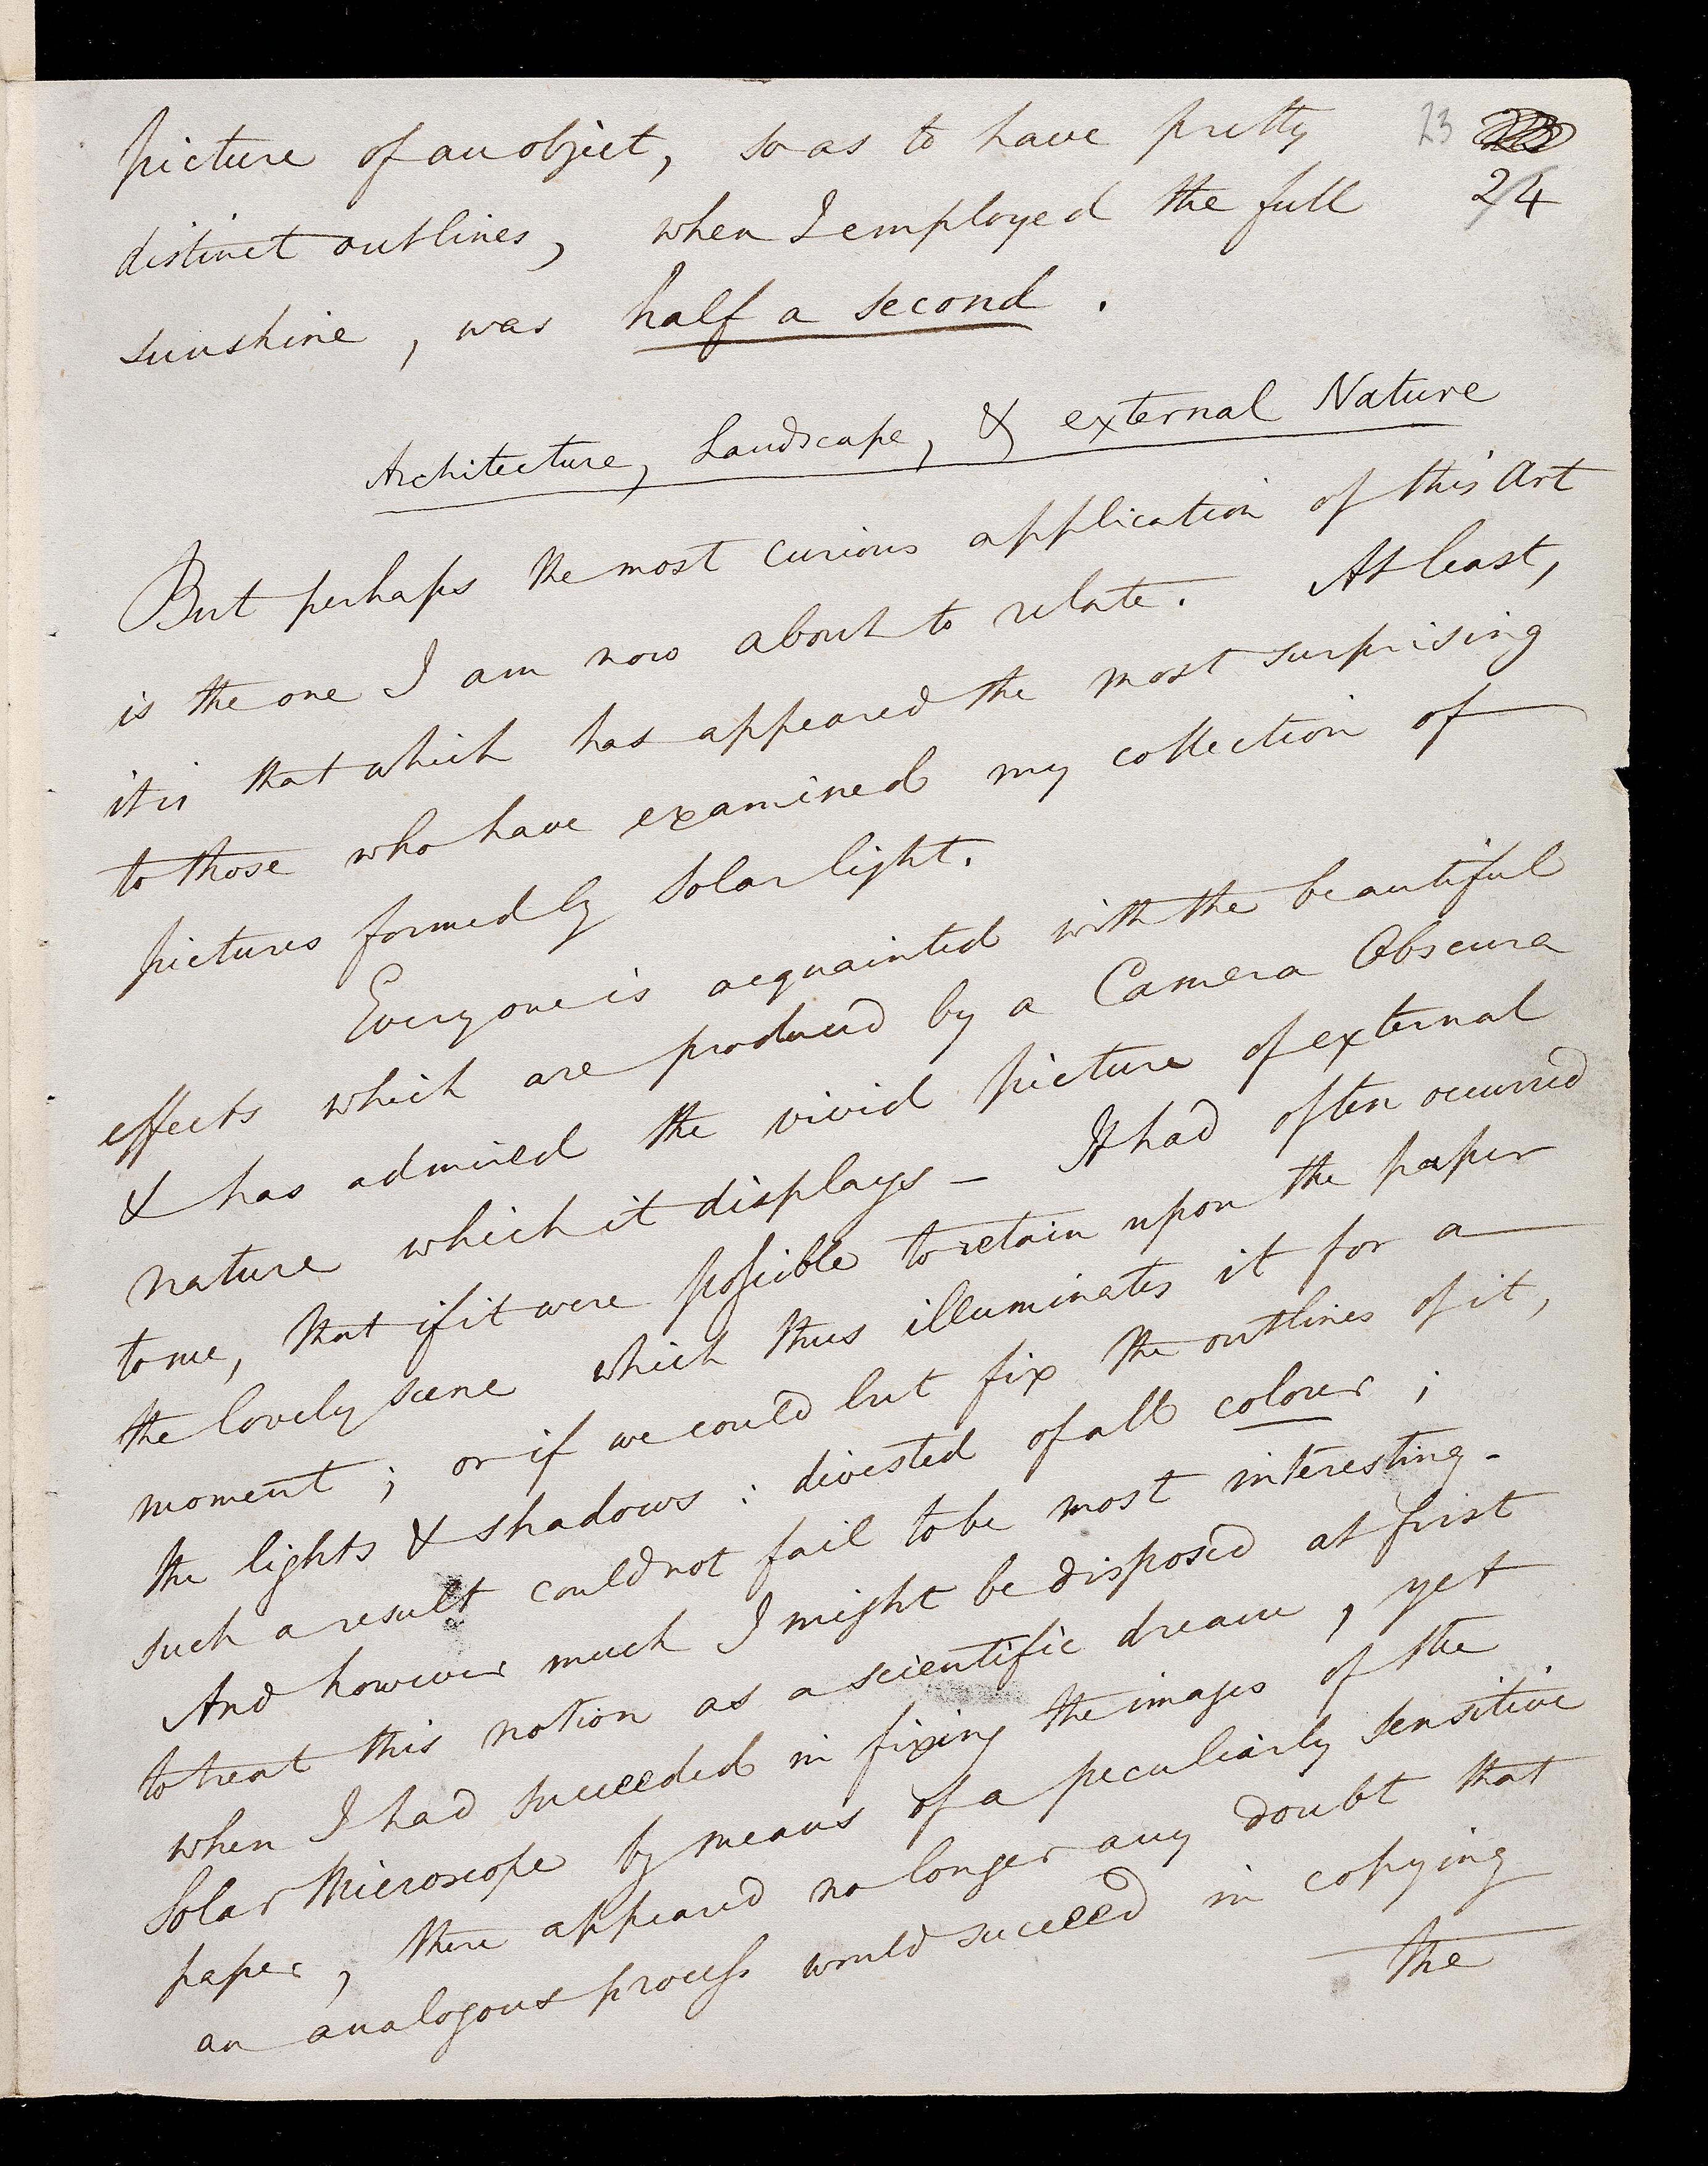 23
24
picture of an object, so as to have pretty
distinct outlines, when I employed the full
sunshine, was half a second.
Architecture, Landscape, & external Nature
But perhaps the most curious application of this Art
is the one I am now about to relate. At least,
it is that which has appeared the most surprising
to those who have examined my collection of
pictures formed by solar light.
Every one is acquainted with the beautiful
effects which are produced by a Camera Obscura
& has admired the vivid picture of external
nature which it displays – It had often occurred
to me, that if it were possible to retain upon the paper
the lovely scene which thus illuminates it for a
moment; or if we could but fix the outlines of it,
the lights & shadows: divested of all colour;
such a result could not fail to be most interesting-
And however much I might be disposed at first
to treat this notion as a scientific dream, yet
when I had succeeded in fixing the images of the
Solar Microscope by means of a peculiarly sensitive
paper, there appeared no longer any doubt that
an analogous process would succeed in copying
the